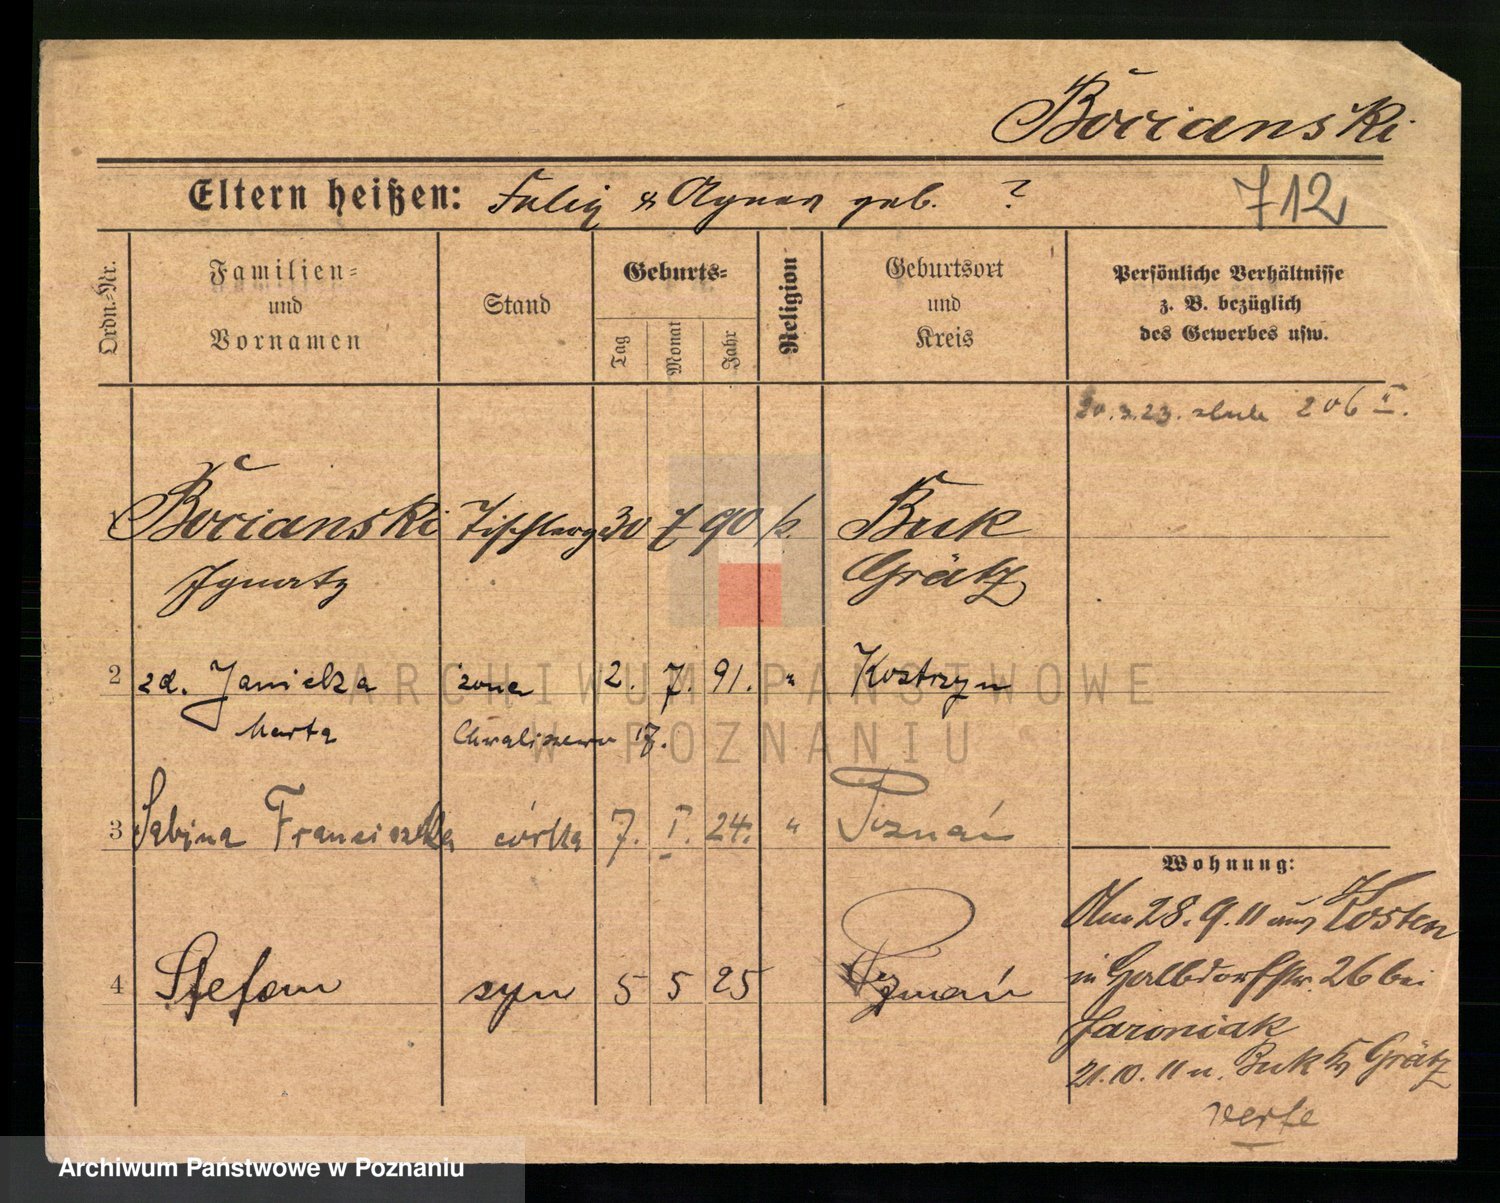 Bocianski
Eltern heißen: Felix & Agnes geb. ?
712
Ordn.-Nr.
Familien-
und
Vornamen
Stand
Geburts-
Tag
Monat
Jahr
Religion
Geburtsort
und
Kreis
Persönliche Verhältnisse
z. B. bezüglich
des Gewerbes usw.
20.3.23. 206 II.
Bocianski Tischlerges 30 7 90 k. Buk
Ignatz Grätz
2 zd. Janielza żona 2. 7. 91. " Kostrzyn
Marta Chwaliszewo 17.
3 Sabina Franciszka córka 7. I. 24. " Poznań
4 Stefan syn 5 5 25 Poznań
Wohnung:
Am 28.9.11 aus Kosten
in Halbdorfstr. 26 bei
Jaroniak
21.10.11 n. Buk Kr Grätz
verte
ARCHIWUM PAŃSTWOWE
W POZNANIU
Archiwum Państwowe w Poznaniu